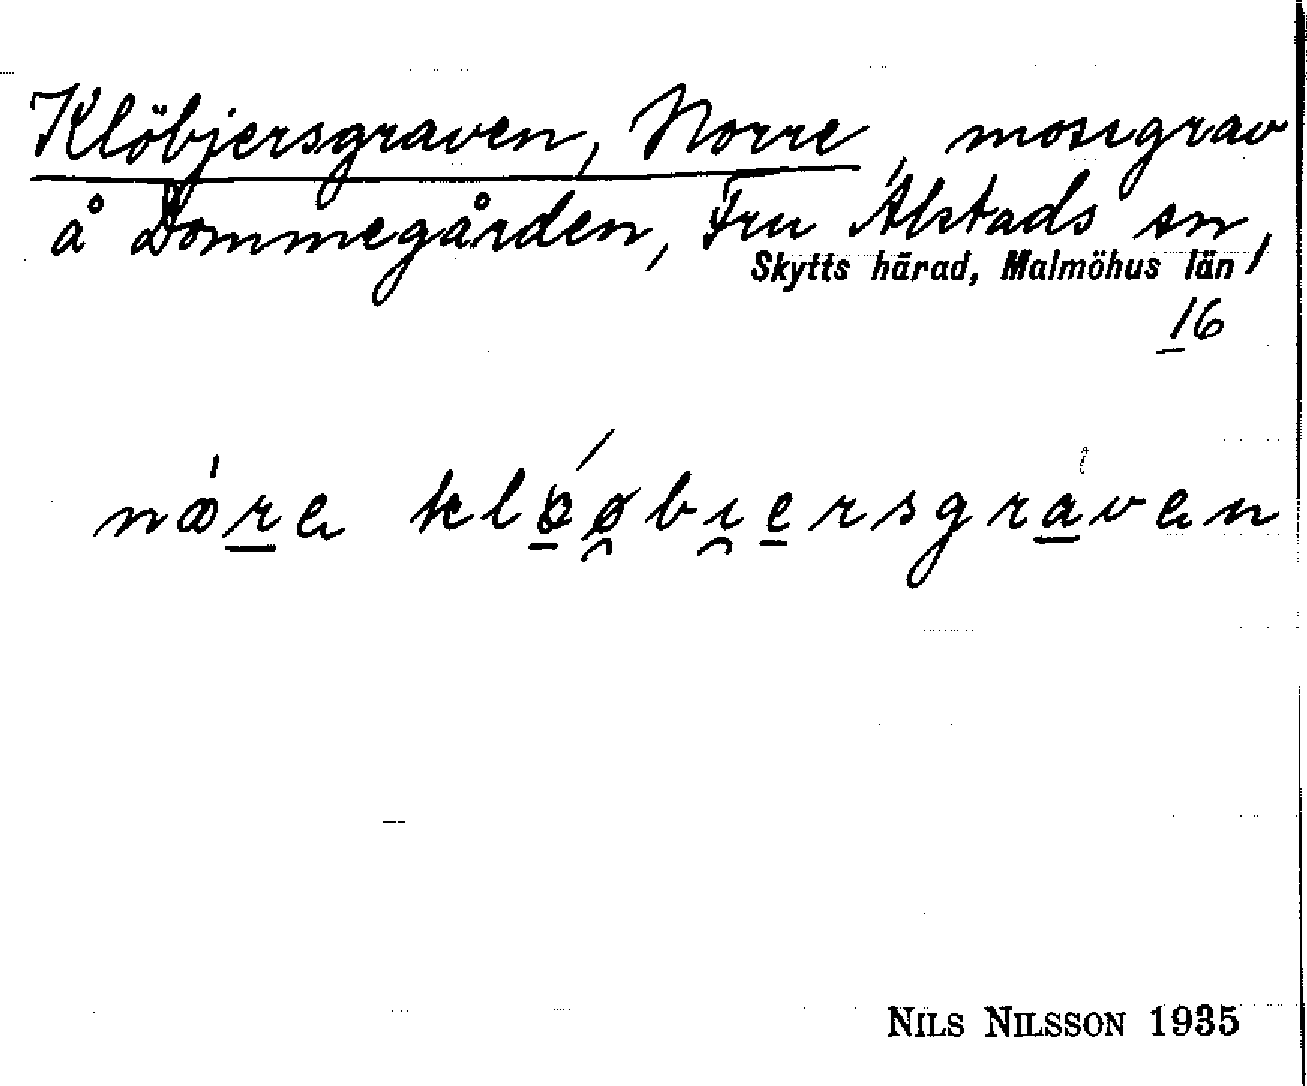 Klöbjersgraven, Norre, mossgrav
å Dommegården, Fru Alstads sn,
Skytts härad, Malmöhus län
16
nöre kløøbiersgraven
NILS NILSSON 1935